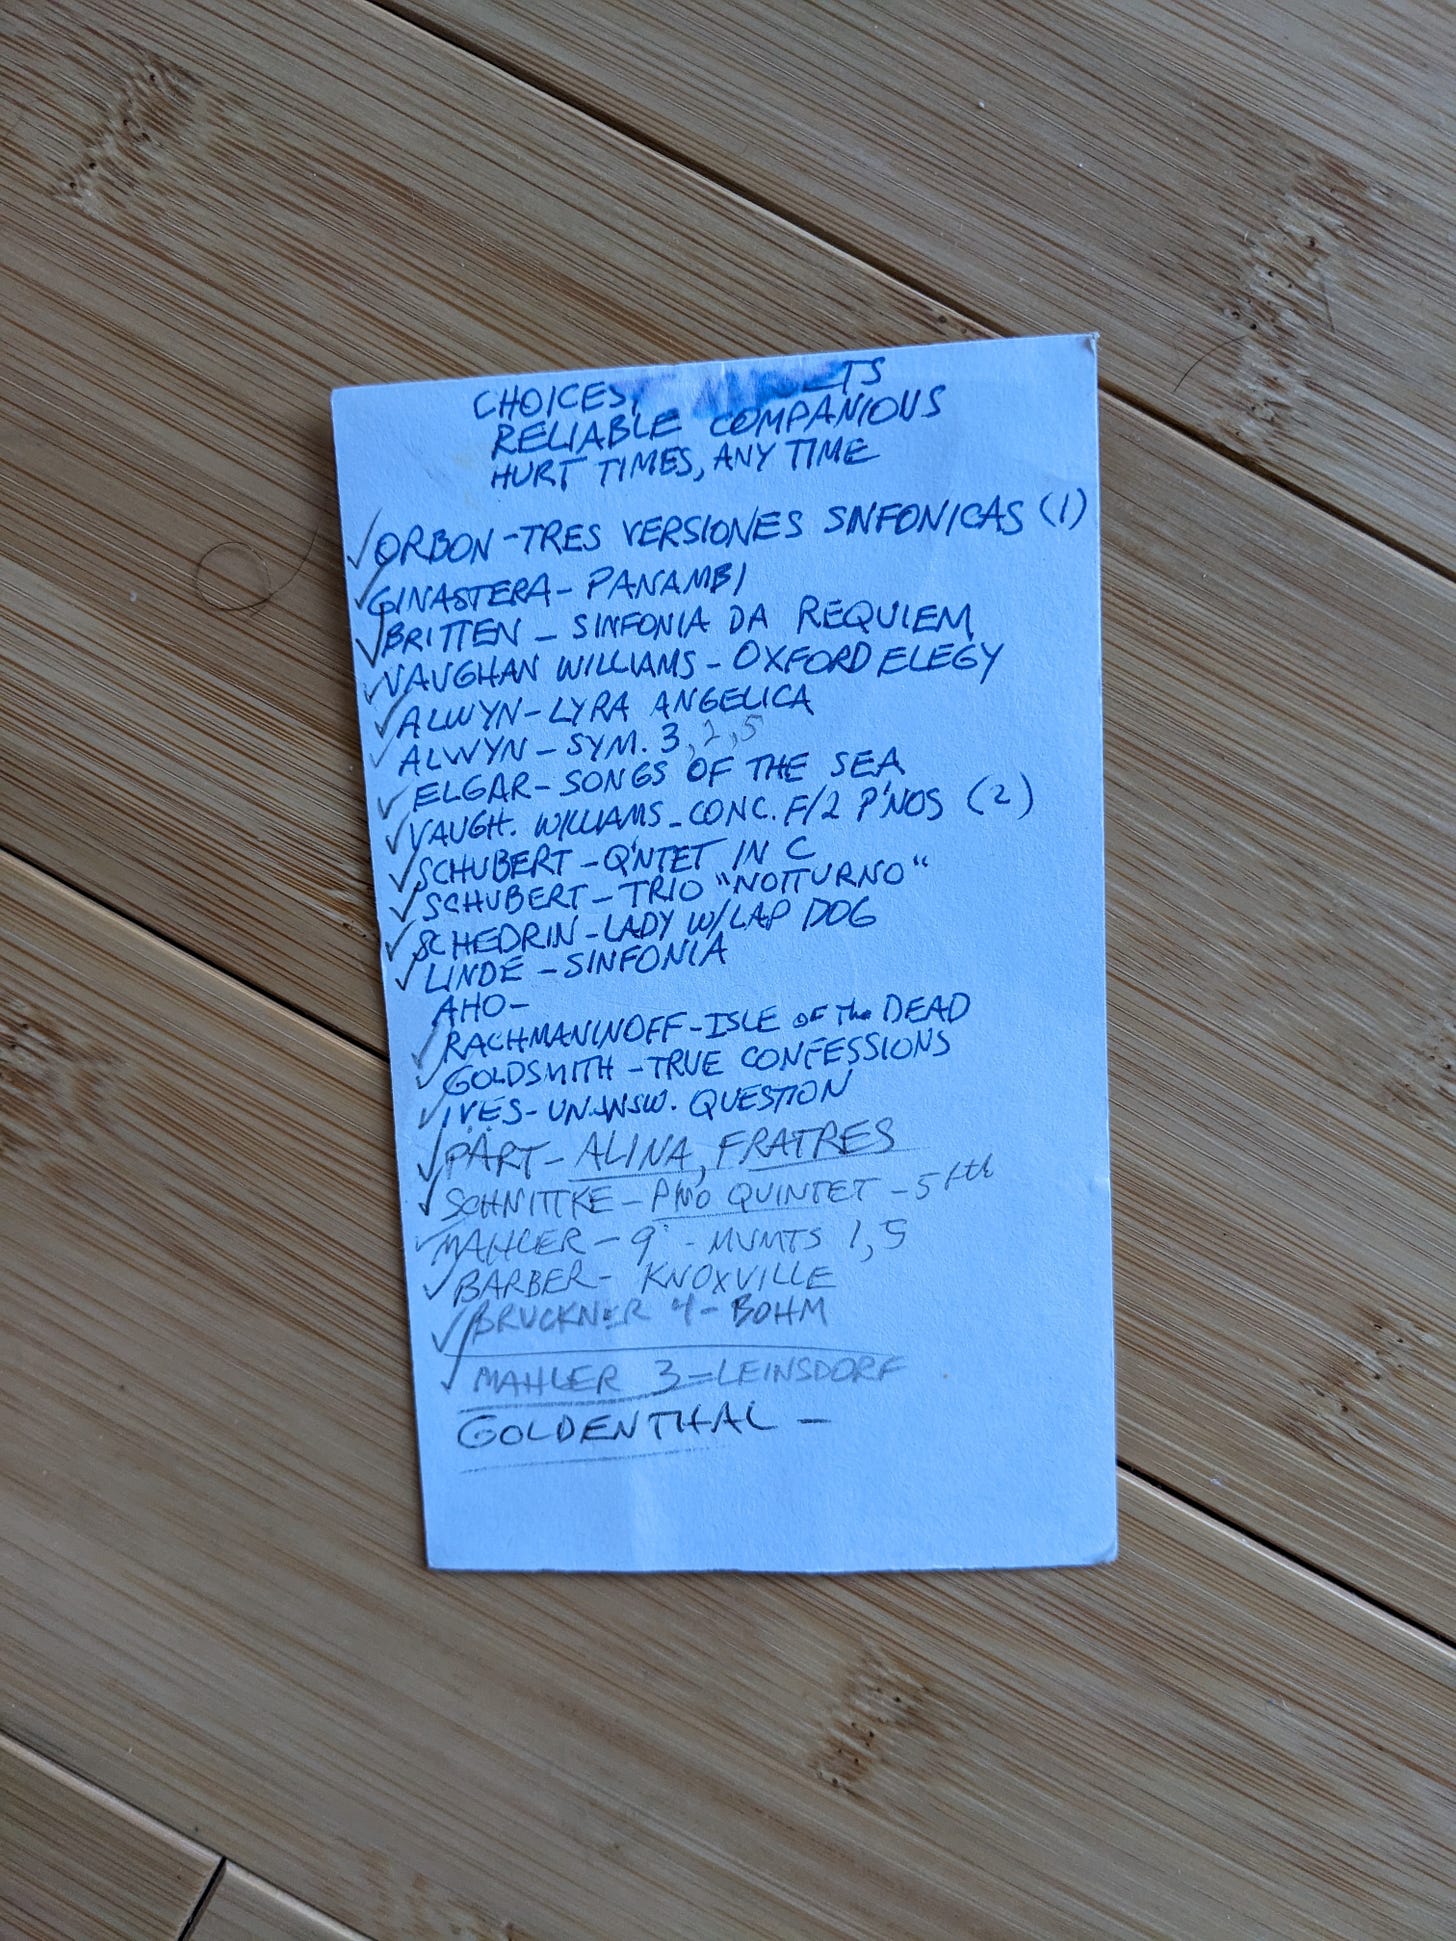 CHOICES,
RELIABLE COMPANIOUS
HURT TIMES, ANY TIME
✓ORBON-TRES VERSIONES SINFONICAS (1)
✓GINASTERA- PANAMBI
✓BRITTEN - SINFONIA DA REQUIEM
✓VAUGHAN WILLIAMS - OXFORD ELEGY
✓ALWYN-LYRA ANGELICA
✓ALWYN - SYM. 3, 2, 5
✓ELGAR-SONGS OF THE SEA
✓VAUGH. WILLIAMS-CONC. F/2 P'NOS (2)
✓SCHUBERT-Q'NTET IN C
✓SCHUBERT-TRIO "NOTTURNO"
✓SCHEDRIN-LADY W/LAP DOG
✓LINDE - SINFONIA
AHO-
✓RACHMANINOFF-ISLE OF the DEAD
✓GOLDSMITH-TRUE CONFESSIONS
✓IVES-UNANSW. QUESTION
✓PÄRT- ALINA, FRATRES
✓SCHNITTKE-PNO QUINTET - 5
✓MAHLER-9 - MVMTS 1,5
✓BARBER- KNOXVILLE
✓BRUCKNER 4-BOHM
✓MAHLER 3=LEINSDORF
GOLDENTHAL -